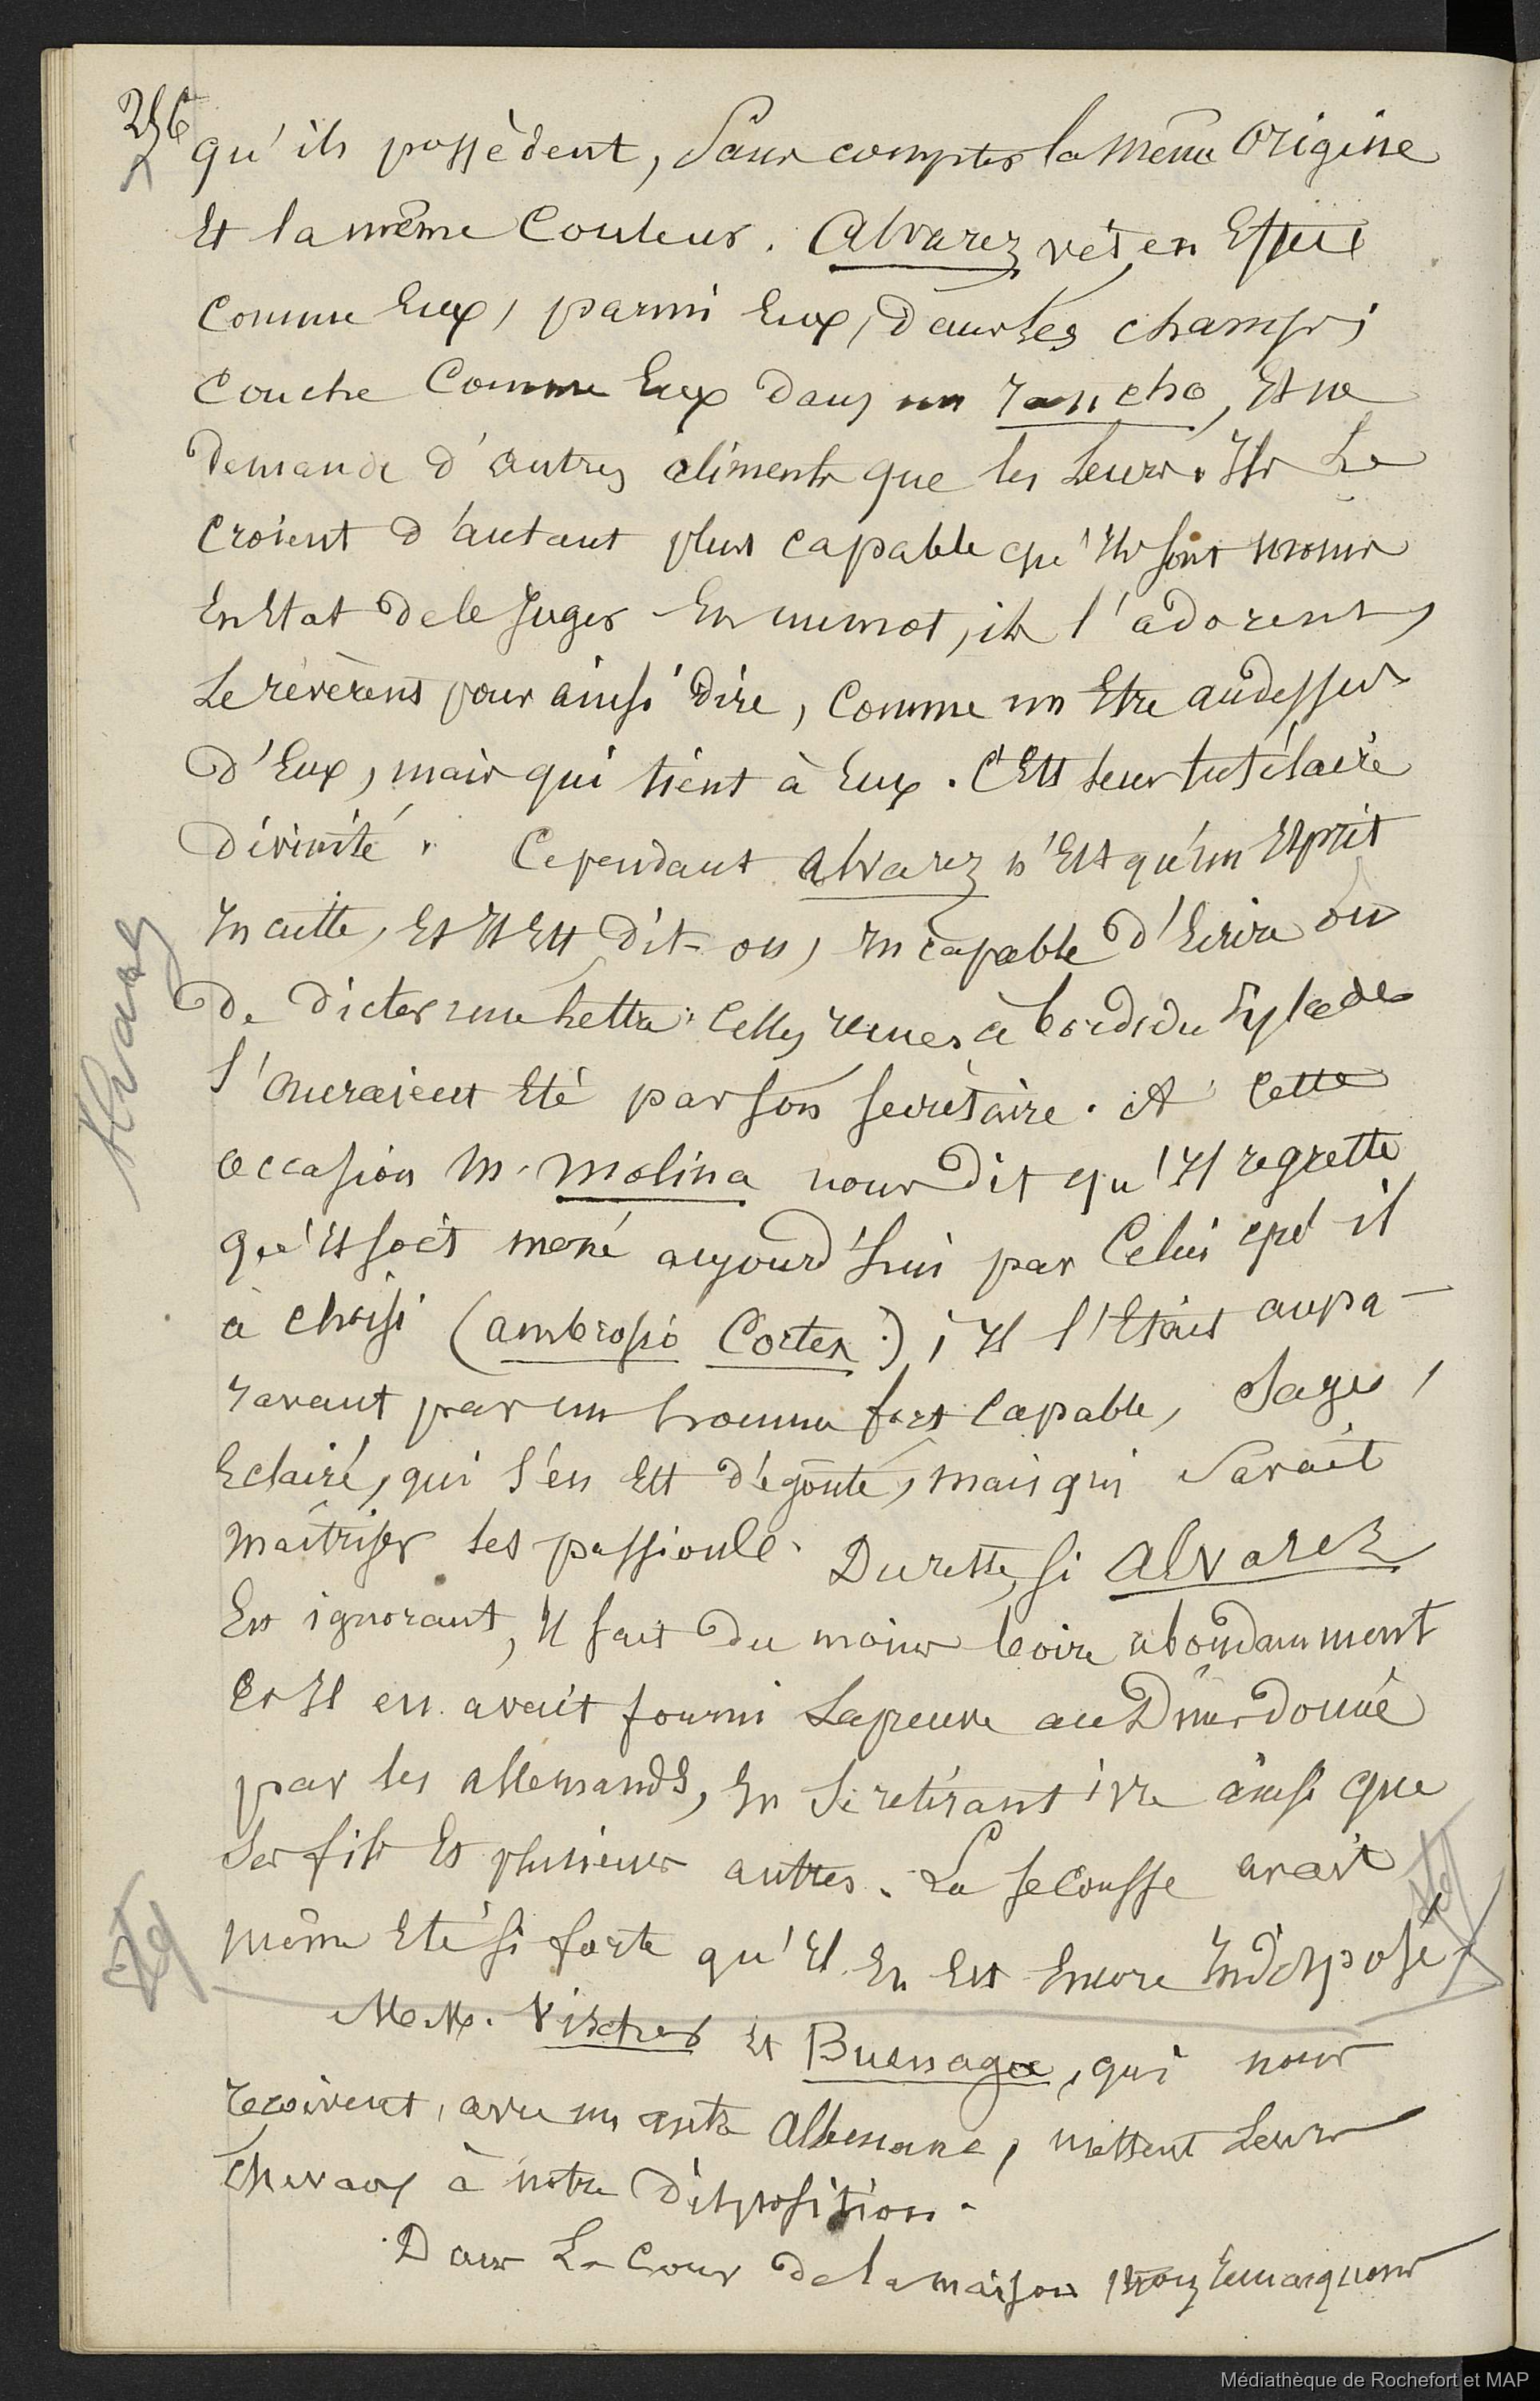 256
qu'ils possèdent, Sans compter la même Origine
Et la même Couleur. Alvarez vêt, en Effet
Comme Eux, parmi Eux, dans les champs;
Couche Comme Eux dans un rancho, Et ne
Demande d'autres aliments que les Leurs. Ils Le
Croient d'autant plus capable qu'ils sont moins
En Etat de le Juger. En un mot, ils l'adorent,
Le révèrent pour ainsi dire, Comme un Etre au dessus
D'Eux, mais qui tient à Eux. C'Est leur tutélaire
Divinité. Cependant Alvarez n'Est qu'un Esprit
Inculte, Et Il Est, dit-on, Incapable d'Ecrire ou
De Dicter une Lettre. Celles venues à bord du Pylade
l'auraient Eté par son secrétaire. A cette
occasion M. Molina nous Dit qu'Il regrette
qu'Il soit mené aujourd'hui par Celui qu'il
a choisi (ambrosio Cortex.); Il l'Etait aupa-
ravant par un homme fort Capable, Sage,
Eclairé, qui s'en Est dégouté, mais qui Savait
maîtriser ses passions. Du reste, si Alvarez
Est ignorant, Il sait Du moins boire abondamment
Et Il en avait fourni La preuve au Diner donné
par les Allemands, En se retirant ivre ainsi que
Ses fils Et plusieurs autres. La secousse avait
même Eté si forte qu'Il En Est Encore Indisposé.
M.M. Vischer Et Buenaga, qui nous
reçoivent, avec un autre Allemand, mettent Leurs
Chevaux à notre Disposition.
Dans La Cour de la maison nous remarquons
Alvarez
Médiathèque de Rochefort et MAP